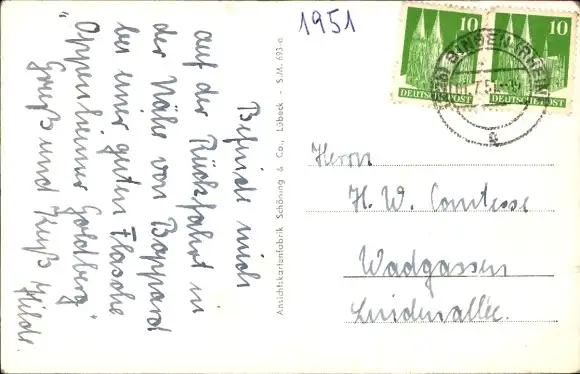 1951
10
10
DEUTSCHE POST
DEUTSCHE POST
BINGEN (RHEIN)
Befinde mich
auf der Rückfahrt in
der Nähe von Boppard
bei einer guten Flasche
"Oppenheimer Goldberg"
Gruß und Kuß Hilde
Ansichtskartenfabrik Schöning & Co., Lübeck - S.M. 693-a
Herrn
H. W. Comtesse
Wadgassen
Lindenallee.